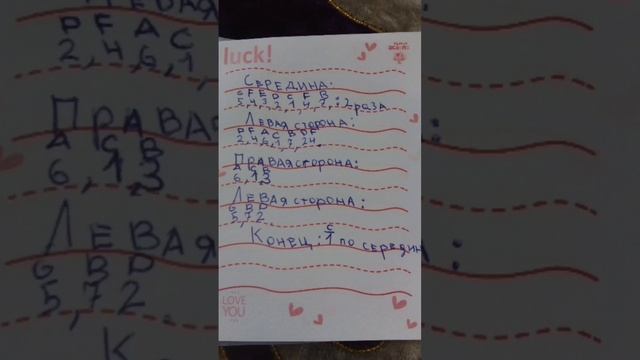 luck!
СЕРЕДИНА:
G F E D C F B
5,4,3,2,1,4,1,: 2 раза.
ЛЕВАЯ СТОРОНА:
D F A C B D F
2,4,6,1,7,24.
ПРАВАЯ СТОРОНА:
A C B
6,1,3
ЛЕВАЯ СТОРОНА:
G B D
5,72
C
КОНЕЦ: 1 по середин
LOVE
YOU